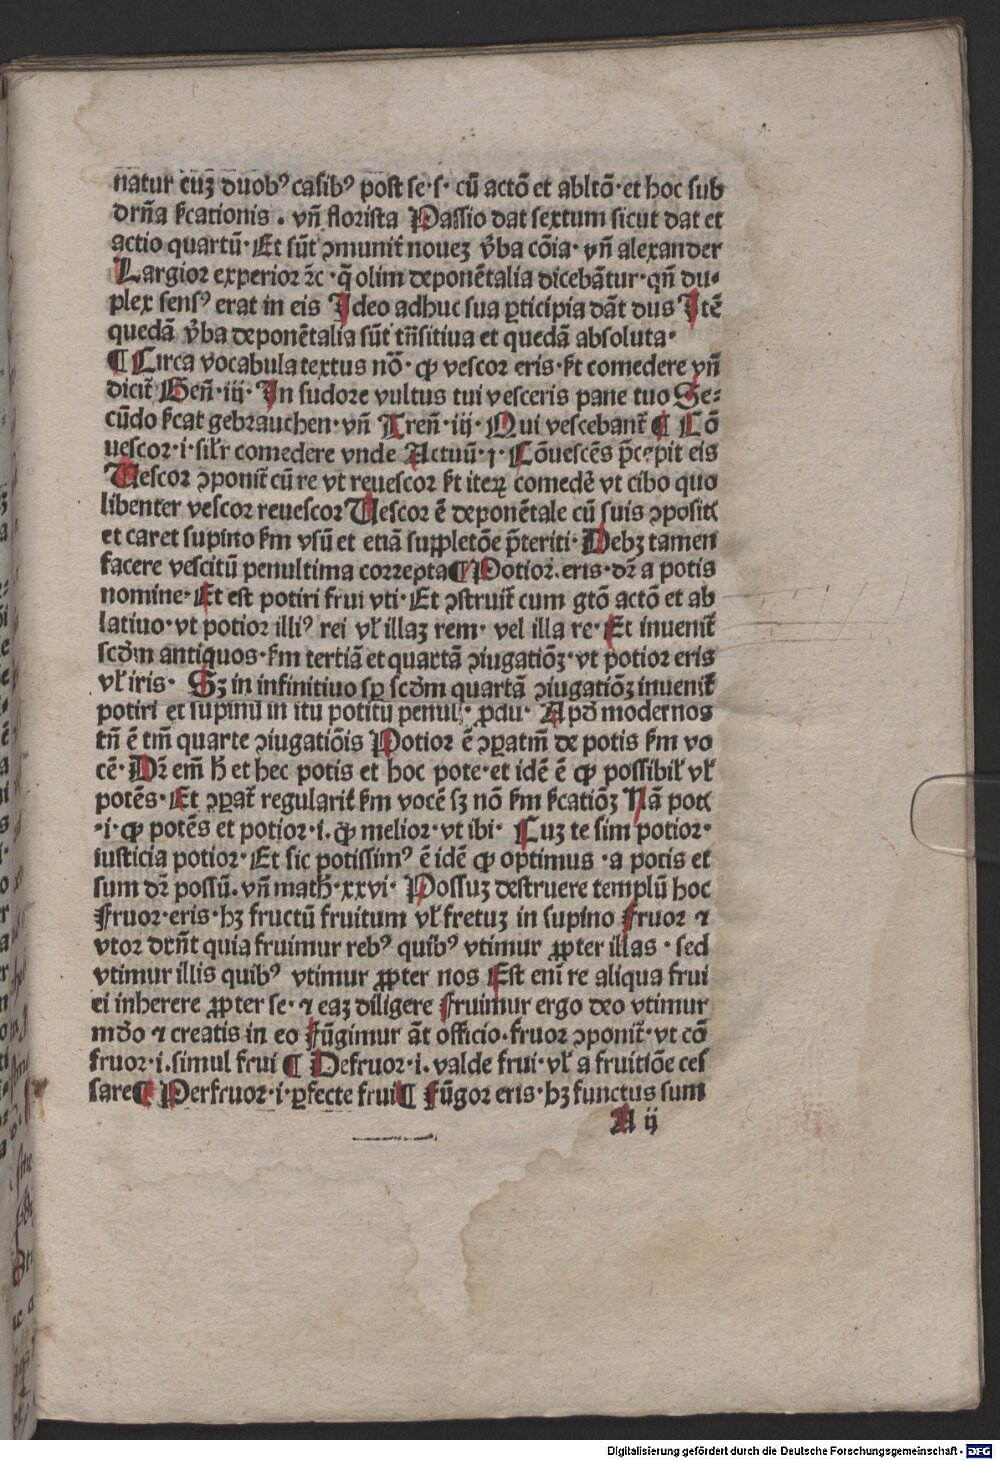 natur cuʒ duobꝰ casibꝰ post se·s· cū actō et abltō·et hoc sub
drn̄a ſcationis . vn̄ florista Passio dat sextum sicut dat et
actio quartū·Et sūt ꝯmunit̄ nouez v̄ba cōia·vn̄ alexander
Largior experior ⁊c·q̄ olim deponētalia dicebātur·qn̄ du⸗
plex sensꝰ erat in eis Ideo adhuc sua ꝑticipia dāt dus Itē
quedā v̄ba deponētalia sūt tn̄sitiua et quedā absoluta·
¶ Circa vocabula textus nō· ꝙ vescor eris·ſt comedere vn̄
dicit̄ Gen̄·iij· In sudore vultus tui vesceris pane tuo Se⸗
cūdo ſcat gebrauchen·vn̄ Tren̄·iij·Qui vescebant̄ ¶ Cō
uescor·i·sil'r comedere vnde Actuū·j·Cōuescēs p̄cepit eis
Uescor ꝯponit̄ cū re vt reuescor ſt iteꝝ comedē vt cibo quo
libenter vescor reuescor Uescor ē deponētale cū suis ꝯposit
et caret supino ſm vsū et etiā suppletōe p̄teriti·Debʒ tamen
facere vescitū penultima correpta ¶ Potior·eris·dr̄ a potis
nomine·Et est potiri frui vti·Et ꝯstruit̄ cum gtō actō et ab
latiuo·vt potior illiꝰ rei vł illaʒ rem· vel illa re·Et inuenit̄
scd̄m antiquos·ſm tertiā et quartā ꝯiugatiōʒ·vt potior eris
vł iris· Sʒ in infinitiuo sꝑ scd̄m quartā ꝯiugatiōʒ inuenit̄
potiri et supinū in itu potitu penul· ꝓdu· Apd̄ modernos
tn̄ ē tm̄ quarte ꝯiugatiōis Potior ē ꝯꝑatm̄ de potis ſm vo
cē·Dr̄ em̄ h̄ et hec potis et hoc pote·et idē ē ꝙ possibił vł
potēs·Et ꝯꝑat̄ regularit̄ ſm vocē sʒ nō ſm ſcatiōʒ Nā pot
·i·ꝙ potēs et potior·i·ꝙ melior·vt ibi· Cuʒ te sim potior·
iusticia potior·Et sic potissimꝰ ē idē ꝙ optimus ·a potis et
sum dr̄ possū·vn̄ math̄·xxvi· Possuʒ destruere templū hoc
Fruor·eris·hʒ fructū fruitum vł fretuʒ in supino Fruor ⁊
vtor drn̄t quia fruimur rebꝰ quibꝰ vtimur ꝓpter illas · sed
vtimur illis quibꝰ vtimur ꝓpter nos Est eni̅ re aliqua frui
ei inherere ꝓpter se·⁊ eaʒ diligere Fruimur ergo deo vtimur
md̄o ⁊ creatis in eo Fūgimur āt officio·fruor ꝯponit̄·vt cō
fruor·i·simul frui ¶ Defruor·i·valde frui·vł a fruitiōe ces
sare ¶ Perfruor·i·ꝑfecte frui ¶ Fūgor eris·hʒ functus sum
A ij
Digitalisierung gefördert durch die Deutsche Forschungsgemeinschaft - DFG